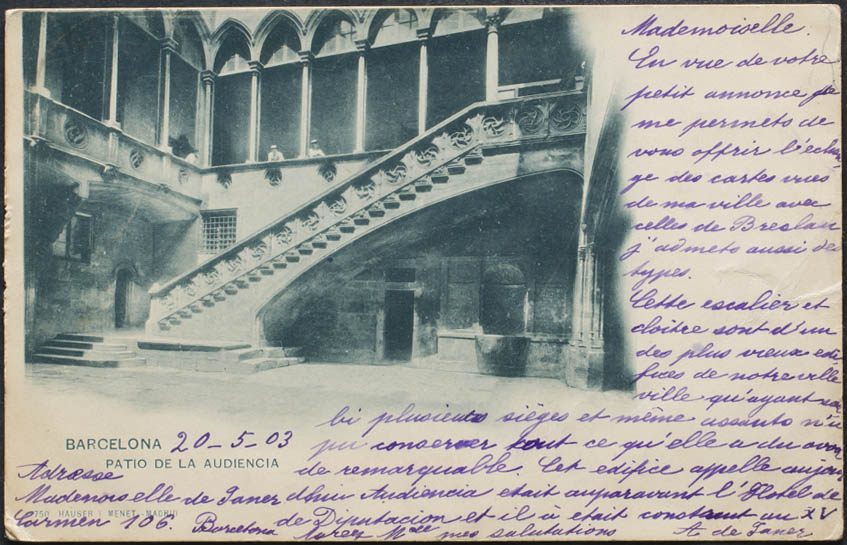 Mademoiselle.
En vue de votre
petit annonce je
me permets de
vous offrir l'échan-
ge des cartes vues
de ma ville avec
celles de Breslau
j'admets aussi des
types.
Cette escalier et
cloître sont d'un
des plus vieux edi
fices de notre ville
ville qu'ayant
bi plusieurs sièges et même assauts n'a
pu conserver tout ce qu'elle a du avoir
de remarquable. Cet edifice appelle aujour
dhui Audiencia etait auparavant l'Hotel de
de Diputacion et il à etait construit au XV
mes salutations A de Janer
BARCELONA 20-5-03
PATIO DE LA AUDIENCIA
Adresse
Mademoiselle de Janer
Carmen 106. Barcelona
750 HAUSER Y MENET.-MADRID